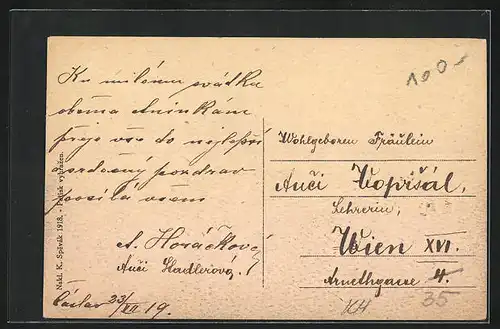 Ku milému svátku
oběma Aninkám
přeje vše to nejlepší
a srdečný pozdrav
posílá všem
A. Horáčková
Anči Stadlerová.
Čáslav 23/VII 19.
Nakl. K. Spívák 1918. - Přetisk vyhrazen.
100-
Wohlgeboren Fräulein
Anči Vopršál,
Lehrerin,
Wien XVI.
Arnethgasse 4.
35
KH